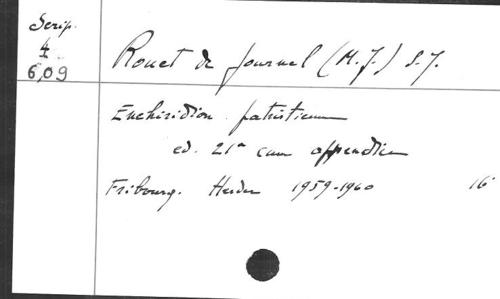 Scrip.
4
6,09
Rouet de Journel (M.J.) S.J.
Enchiridion patristicum
ed. 21ª cum appendice
Fribourg. Herder 1959-1960 16°